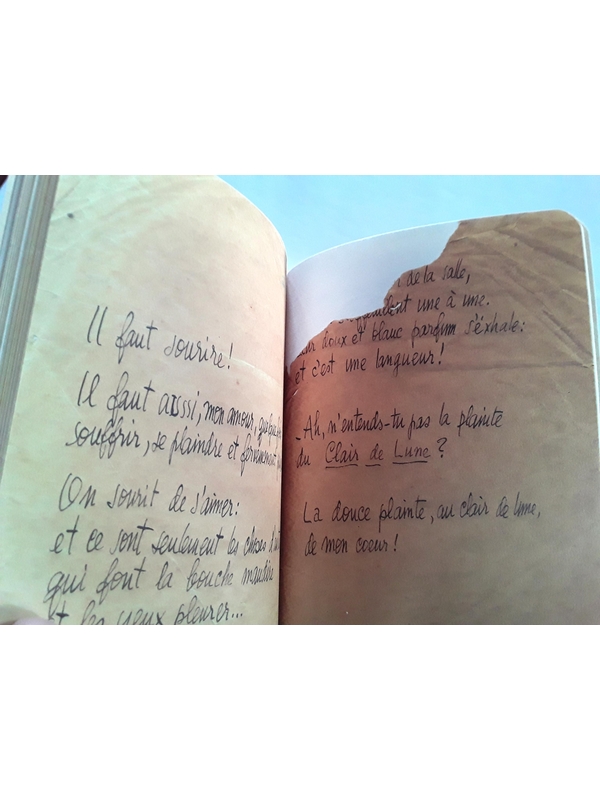 Il faut sourire!
Il faut aussi, mon amour,
souffrir, se plaindre et
On sourit de s'aimer:
et ce sont seulement les choses
qui font la bouche maudire
et les yeux pleurer...
de la salle,
une à une.
doux et blanc parfum s'éxhale:
et c'est une langueur!
_Ah, n'entends-tu pas la plainte
du Clair de Lune?
La douce plainte, au clair de lune,
de mon coeur!